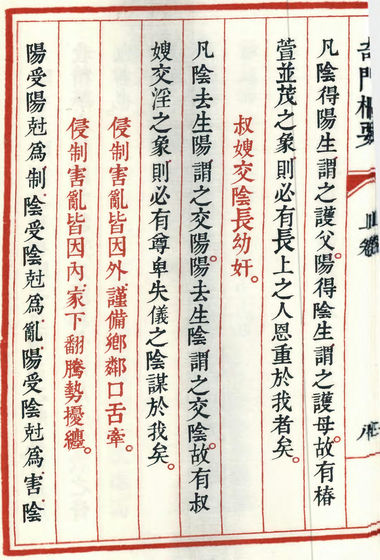 奇門樞要
凡陰得陽生謂之護父。陽得陰生謂之護母。故有椿
萱並茂之象則必有長上之人恩重於我者矣。
叔嫂交陰長幼奸。
凡陰去生陽謂之交陽。陽去生陰謂之交陰。故有叔
嫂交淫之象則必有尊卑失儀之陰謀於我矣。
侵制害亂皆因外謹備鄉鄰口舌牽。
侵制害亂皆因內家下翻騰勢擾纏。
陽受陽尅爲制陰受陰尅爲亂陽受陰尅爲害陰